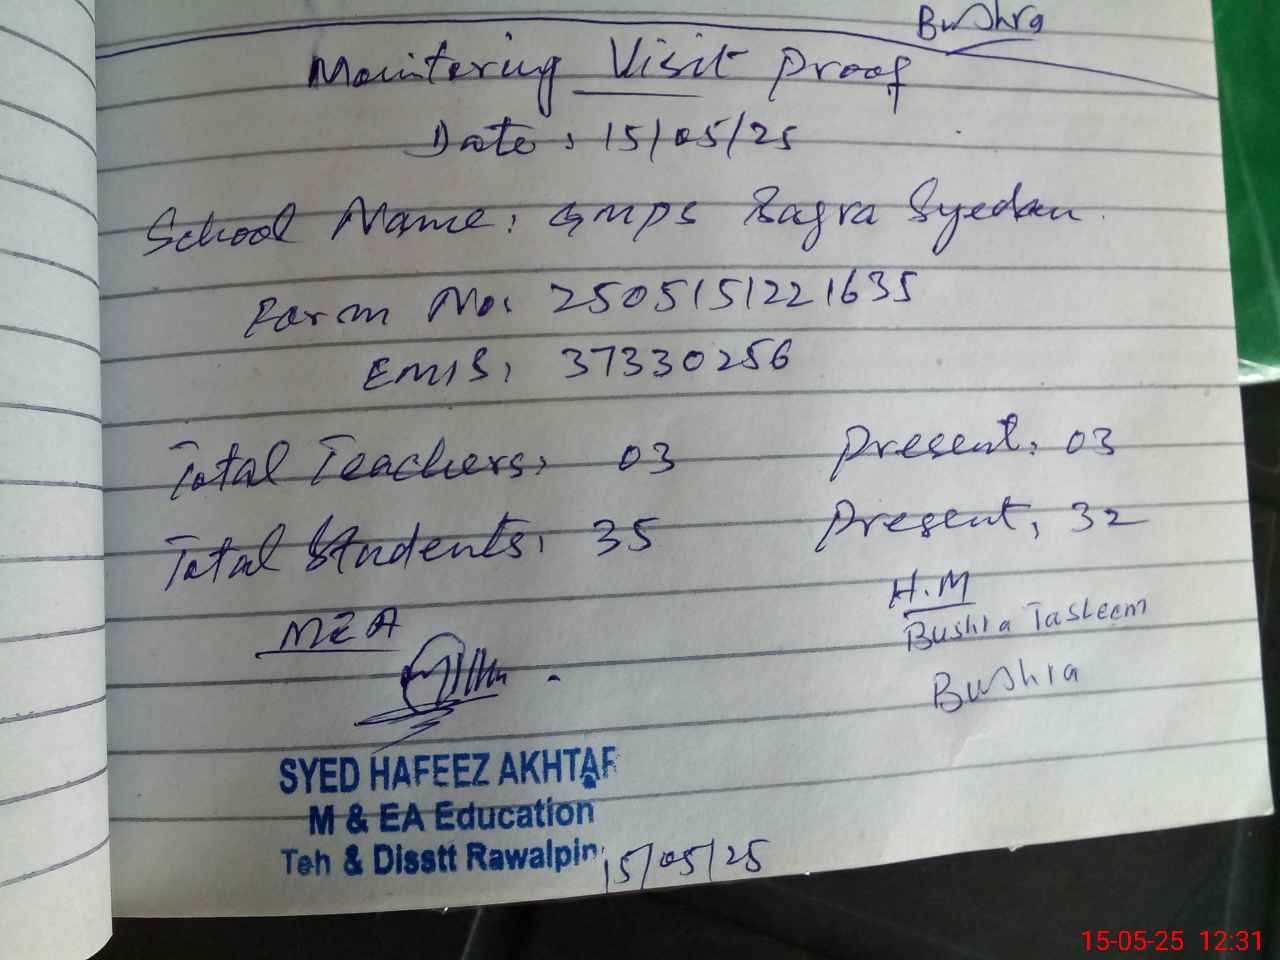 Bushra
Monitering Visit proof
Date: 15/05/25
School Name: GMPS Ragra Syedan.
Form No: 2505151221635
EMIS: 37330256
Total Teachers: 03 Present: 03
Total Students: 35 Present: 32
MEA H.M
Bushra Tasleem
Bushra
SYED HAFEEZ AKHTAR
M & EA Education
Teh & Disstt Rawalpin
15/05/25
15-05-25 12:31